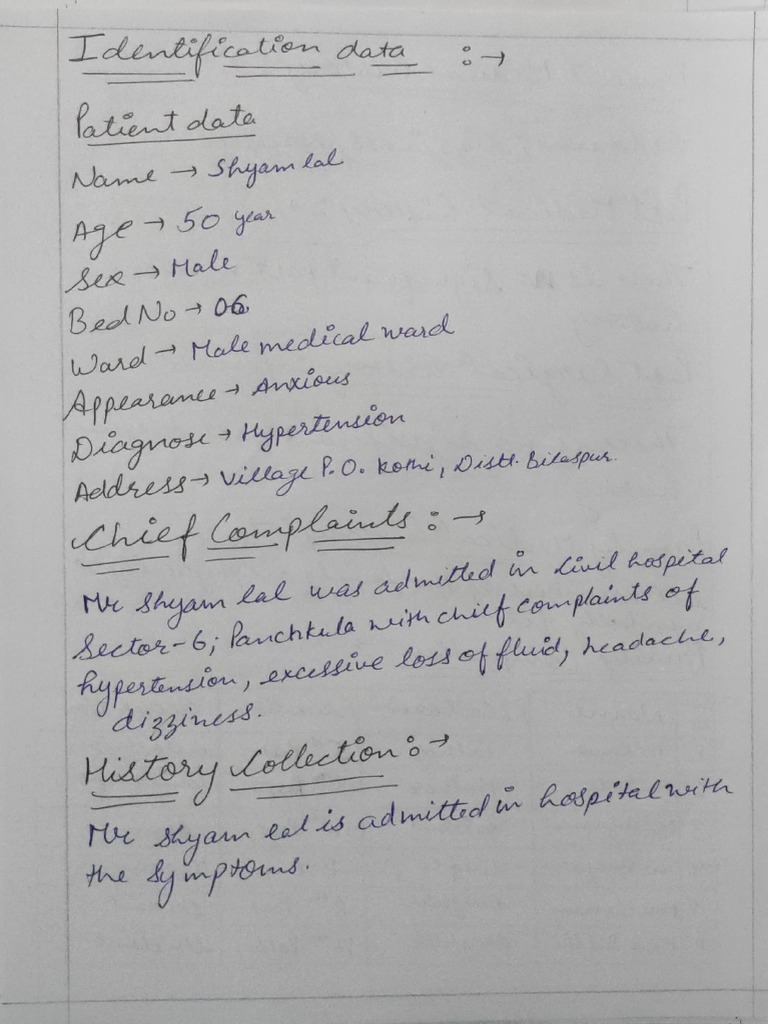 Identification data :→
Patient data
Name → Shyam lal
Age → 50 year
Sex → Male
Bed No → 06
Ward → Male medical ward
Appearance → Anxious
Diagnose → Hypertension
Address → Village P.O. Kothi, Distt. Bilaspur.
Chief Complaints :→
Mr Shyam lal was admitted in Civil hospital
Sector-6; Panchkula with chief complaints of
hypertension, excessive loss of fluid, headache,
dizziness.
History Collection :→
Mr Shyam lal is admitted in hospital with
the symptoms.